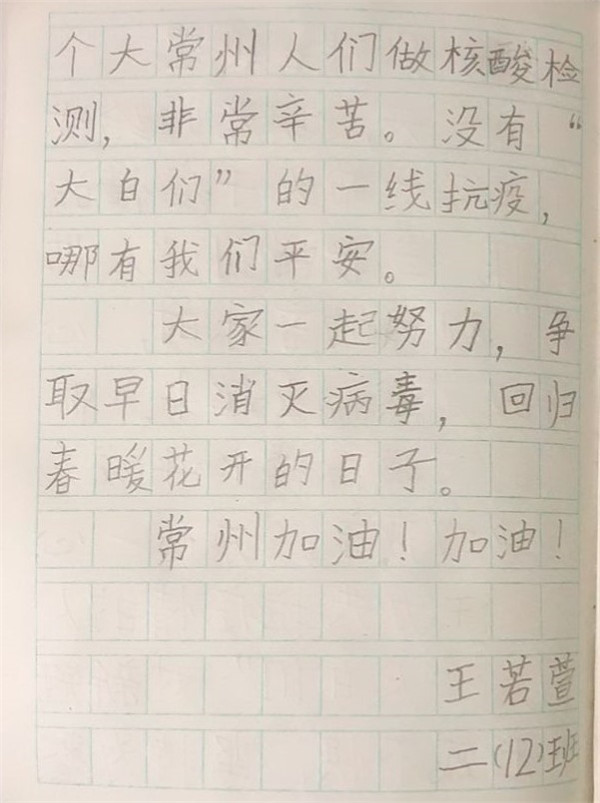 个大常州人们做核酸检
测，非常辛苦。没有“
大白们”的一线抗疫，
哪有我们平安。
大家一起努力，争
取早日消灭病毒，回归
春暖花开的日子。
常州加油！加油！
王若萱
二(12)班